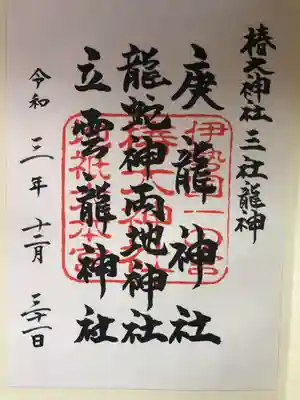 椿大神社 三社龍神
庚龍神社
龍蛇神両地神社
立雲龍神社
令和三年十二月三十一日
伊勢国一之宮
椿大神社
地祇大本宮